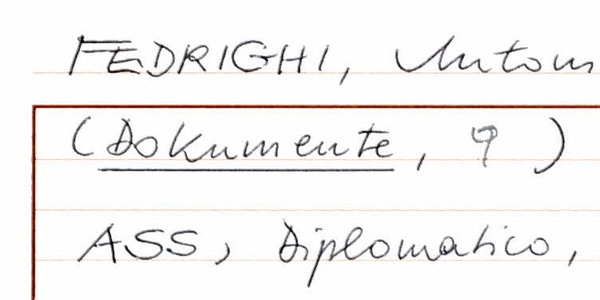 FEDRIGHI, Antoni
(Dokumente, 9)
ASS, Diplomatico,